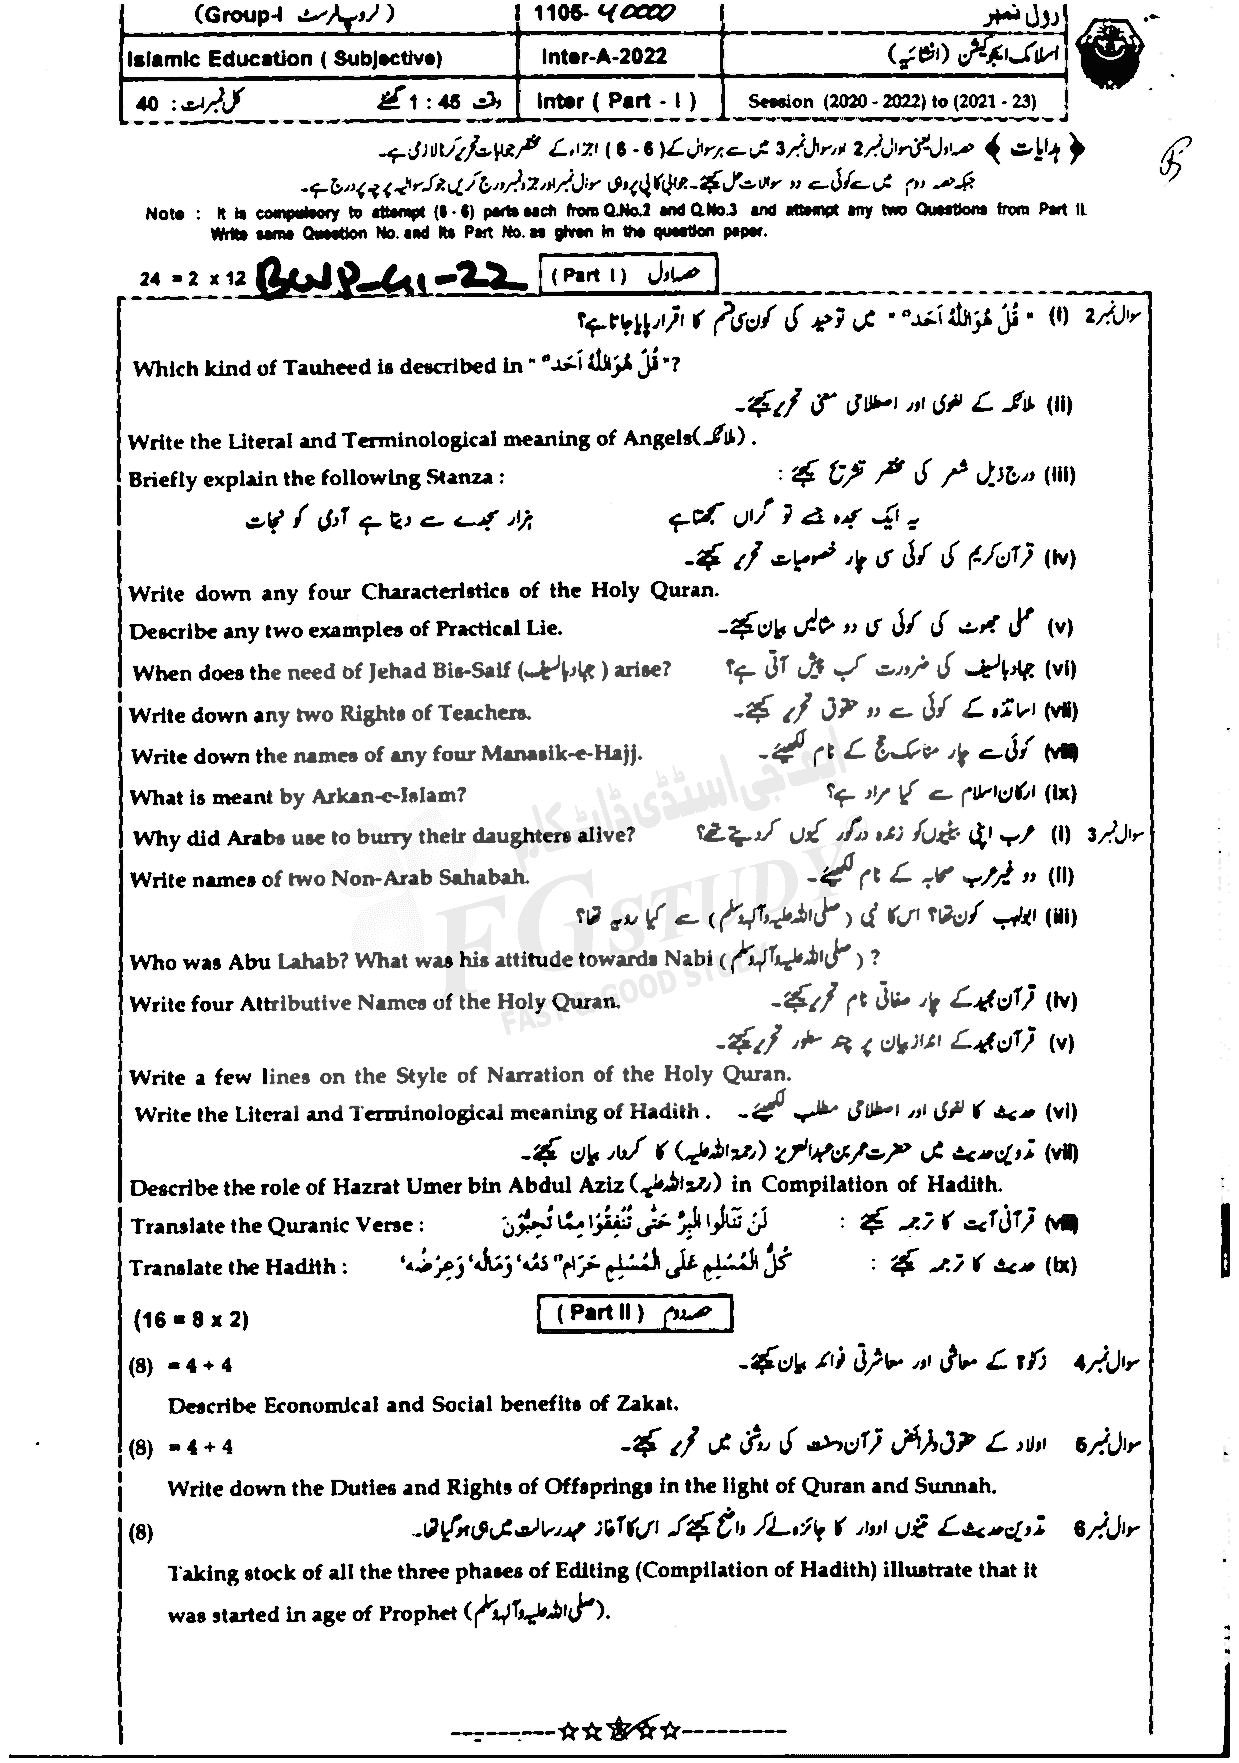 (Group-I گروپ فرسٹ) 1106- 40000 رول نمبر
Islamic Education ( Subjective) Inter-A-2022 اسلامک ایجوکیشن (انشائیہ)
40 : کل نمبرات وقت 1 : 45 گھنٹے Inter ( Part - I ) Session (2020 - 2022) to (2021 - 23)
﴿ ہدایات ﴾ حصہ اول یعنی سوال نمبر 2 اور سوال نمبر 3 میں سے ہر سوال کے (6 - 6) اجزاء کے مختصر جوابات تحریر کرنا لازمی ہے۔
جبکہ حصہ دوم میں سے کوئی سے دو سوالات حل کیجئے۔ جوابی کاپی پر وہی سوال نمبر اور جزو نمبر درج کریں جو کہ سوالیہ پرچہ پر درج ہے۔
Note : It is compulsory to attempt (6 - 6) parts each from Q.No.2 and Q.No.3 and attempt any two Questions from Part II.
Write same Question No. and its Part No. as given in the question paper.
24 = 2 x 12 BWP-G1-22 (Part I) حصہ اول
سوال نمبر 2 (i) "قُلْ هُوَ اللّٰهُ اَحَد" میں توحید کی کون سی قسم کا اقرار پایا جاتا ہے؟
Which kind of Tauheed is described in "قُلْ هُوَ اللّٰهُ اَحَد"?
(ii) ملائکہ کے لغوی اور اصطلاحی معنی تحریر کیجئے۔
Write the Literal and Terminological meaning of Angels(ملائکہ) .
Briefly explain the following Stanza : (iii) درج ذیل شعر کی مختصر تشریح کیجئے :
یہ ایک سجدہ جسے تو گراں سمجھتا ہے ہزار سجدے سے دیتا ہے آدمی کو نجات
(iv) قرآن کریم کی کوئی سی چار خصوصیات تحریر کیجئے۔
Write down any four Characteristics of the Holy Quran.
Describe any two examples of Practical Lie. (v) عملی جھوٹ کی کوئی سی دو مثالیں بیان کیجئے۔
When does the need of Jehad Bis-Saif (جہاد بالسیف) arise? (vi) جہاد بالسیف کی ضرورت کب پیش آتی ہے؟
Write down any two Rights of Teachers. (vii) اساتذہ کے کوئی سے دو حقوق تحریر کیجئے۔
Write down the names of any four Manasik-e-Hajj. (viii) کوئی سے چار مناسک حج کے نام لکھیئے۔
What is meant by Arkan-e-Islam? (ix) ارکان اسلام سے کیا مراد ہے؟
Why did Arabs use to burry their daughters alive? سوال نمبر 3 (i) عرب اپنی بیٹیوں کو زندہ درگور کیوں کر دیتے تھے؟
Write names of two Non-Arab Sahabah. (ii) دو غیر عرب صحابہ کے نام لکھیئے۔
(iii) ابولہب کون تھا؟ اس کا نبی (صلی اللہ علیہ وآلہ وسلم) سے کیا رویہ تھا؟
Who was Abu Lahab? What was his attitude towards Nabi (صلی اللہ علیہ وآلہ وسلم) ?
Write four Attributive Names of the Holy Quran. (iv) قرآن مجید کے چار صفاتی نام تحریر کیجئے۔
(v) قرآن مجید کے انداز بیان پر چند سطور تحریر کیجئے۔
Write a few lines on the Style of Narration of the Holy Quran.
Write the Literal and Terminological meaning of Hadith . (vi) حدیث کا لغوی اور اصطلاحی مطلب لکھیئے۔
(vii) تدوین حدیث میں حضرت عمر بن عبدالعزیز (رحمۃ اللہ علیہ) کا کردار بیان کیجئے۔
Describe the role of Hazrat Umer bin Abdul Aziz (رحمۃ اللہ علیہ) in Compilation of Hadith.
Translate the Quranic Verse : لَنْ تَنَالُوا الْبِرَّ حَتّٰی تُنْفِقُوْا مِمَّا تُحِبُّوْنَ (viii) قرآنی آیت کا ترجمہ کیجئے :
Translate the Hadith : كُلُّ الْمُسْلِمِ عَلَی الْمُسْلِمِ حَرَام" دَمُه' وَمَالُه' وَعِرْضُه' (ix) حدیث کا ترجمہ کیجئے :
(16 = 8 x 2) (Part II) حصہ دوم
(8) = 4 + 4 سوال نمبر 4 زکوٰۃ کے معاشی اور معاشرتی فوائد بیان کیجئے۔
Describe Economical and Social benefits of Zakat.
(8) = 4 + 4 سوال نمبر 5 اولاد کے حقوق و فرائض قرآن و سنت کی روشنی میں تحریر کیجئے۔
Write down the Duties and Rights of Offsprings in the light of Quran and Sunnah.
(8) سوال نمبر 6 تدوین حدیث کے تینوں ادوار کا جائزہ لے کر واضح کیجئے کہ اس کا آغاز عہد رسالت میں ہی ہو گیا تھا۔
Taking stock of all the three phases of Editing (Compilation of Hadith) illustrate that it
was started in age of Prophet (صلی اللہ علیہ وآلہ وسلم).
ایف جی اسٹڈی ڈاٹ کام
FG STUDY
FAST & GOOD STUDY